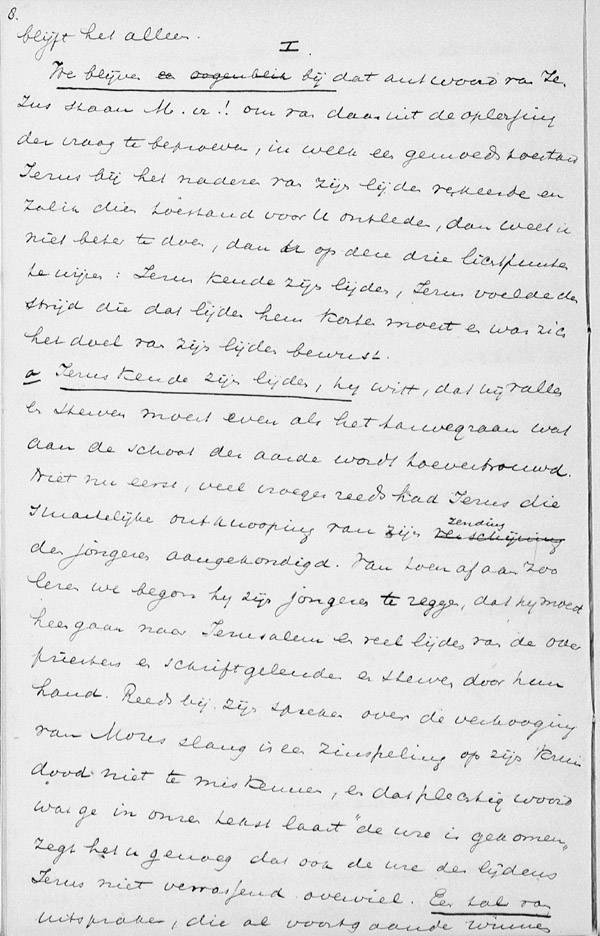 8.
blijft het alleen.
I.
We blijven een oogenblik bij dat antwoord van Je-
zus staan M. vr!! om van daar uit de oplossing
der vraag te beproeven, in welk een gemoedstoestand
Jezus bij het naderen van zijn lijden verkeerde en
zal ik dien toestand voor U ontleden, dan weet ik
niet beter te doen, dan U op deze drie lichtpunten
te wijzen: Jezus kende zijn lijden, Jezus voelde den
strijd die dat lijden hem kosten moest en was zich
het doel van zijn lijden bewust.
a Jezus kende zijn lijden, hy wist, dat hij vallen
en sterven moest even als het tarwegraan wat
aan de schoot der aarde wordt toevertrouwd.
Niet nu eerst, veel vroeger reeds had Jezus die
smartelijke ontknooping van zijn verschijning
zending
den jongeren aangekondigd. Van toen af aan zoo
lezen we begon hy zijn jongeren te zeggen, dat hy moest
heengaan naar Jerusalem en veel lijden van de over
priesters en schriftgeleerden en sterven door hun
hand. Reeds bij zijn spreken over de verhooging
van Mozes slang is een zinspeling op zijn kruis
dood niet te miskennen, en dat plechtig woord
wat ge in onzen tekst laast "de ure is gekomen"
zegt het u genoeg dat ook de ure des lijdens
Jezus niet verrassend overviel. Een tal van
uitspraken, die al voortgaande winnen